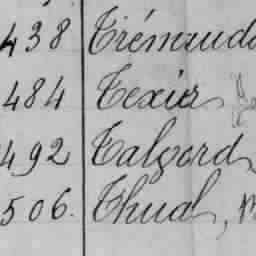 438 Trémaud
484 Texier
492 Talgord
506. Thual,